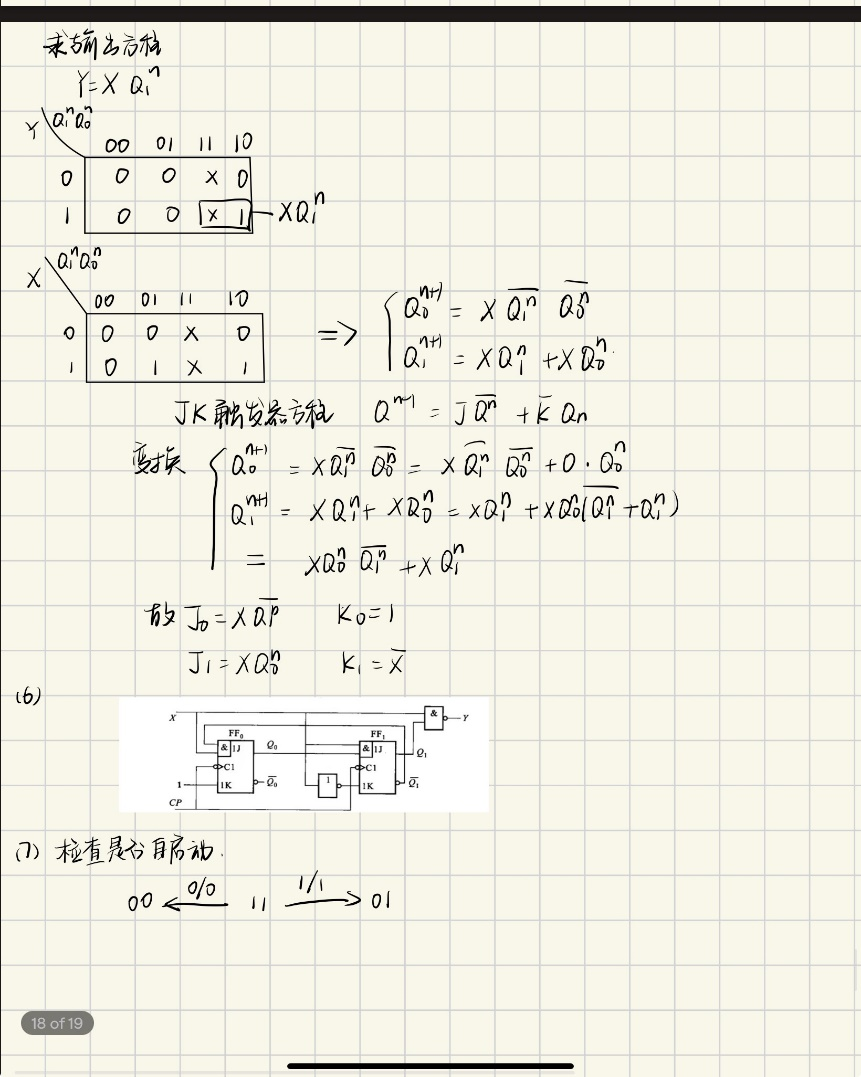 求输出方程
Y=X Q₁ⁿ
Y Q₁ⁿQ₀ⁿ
00 01 11 10
0 0 0 x 0
1 0 0 x 1 XQ₁ⁿ
X Q₁ⁿQ₀ⁿ
00 01 11 10
0 0 0 x 0
1 0 1 x 1
=> { Q₀ⁿ⁺¹ = X Q̅₁ⁿ̅ Q̅₀ⁿ̅
Q₁ⁿ⁺¹ = XQ₁ⁿ + XQ₀ⁿ
JK触发器方程 Qⁿ⁺¹ = J Q̅ⁿ̅ + K̅ Qn
变换 { Q₀ⁿ⁺¹ = X Q̅₁ⁿ̅ Q̅₀ⁿ̅ = X Q̅₁ⁿ̅ Q̅₀ⁿ̅ + 0 · Q₀ⁿ
Q₁ⁿ⁺¹ = XQ₁ⁿ + XQ₀ⁿ = XQ₁ⁿ + XQ₀ⁿ(Q̅₁ⁿ̅ + Q₁ⁿ)
= XQ₀ⁿ Q̅₁ⁿ̅ + XQ₁ⁿ
故 J₀ = X Q̅₁ⁿ̅ K₀ = 1
J₁ = XQ₀ⁿ K₁ = X̅
(6)
X & Y
FF₀ FF₁
& 1J Q₀ & 1J Q₁
C1 C1
1 1K Q̅₀ 1 1K Q̅₁
CP
(7) 检查是否自启动.
00 ← 0/0 11 1/1 → 01
18 of 19